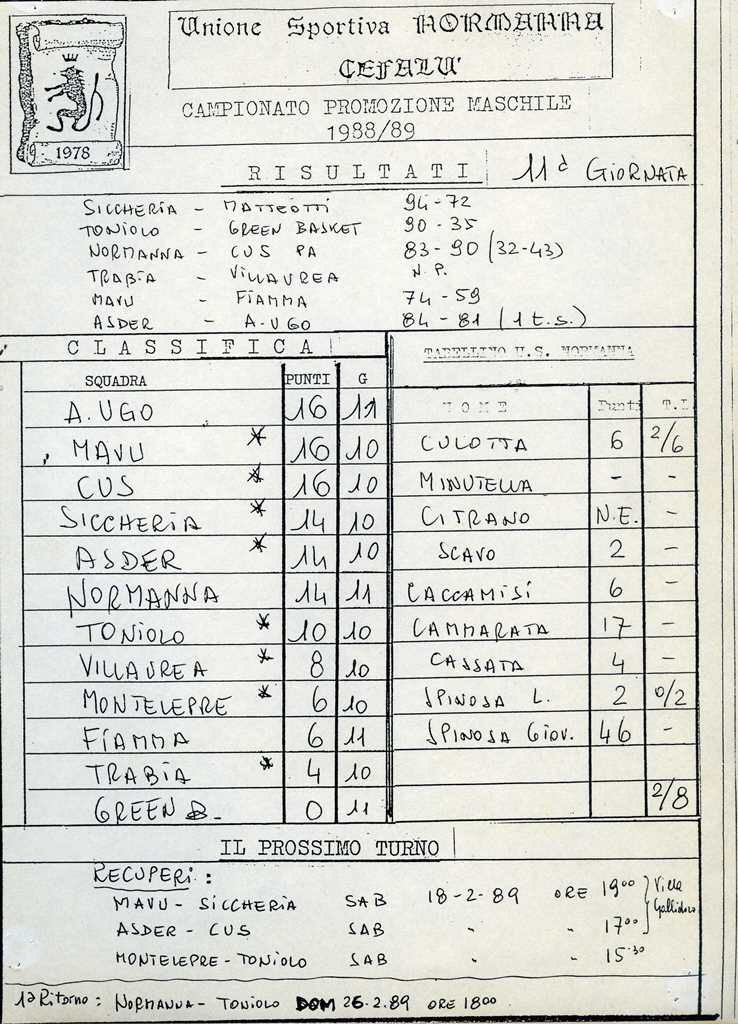 Unione Sportiva NORMANNA
CEFALU'
CAMPIONATO PROMOZIONE MASCHILE
1988/89
1978
RISULTATI 11ª GIORNATA
SICCHERIA - MATTEOTTI 94-72
TONIOLO - GREEN BASKET 90-35
NORMANNA - CUS PA 83-90 (32-43)
TRABIA - VILLAUREA N.P.
MAVU - FIAMMA 74-59
ASDER - A.UGO 84-81 (1 t.s.)
CLASSIFICA
SQUADRA PUNTI G
A.UGO 16 11
MAVU * 16 10
CUS * 16 10
SICCHERIA * 14 10
ASDER * 14 10
NORMANNA 14 11
TONIOLO * 10 10
VILLAUREA * 8 10
MONTELEPRE * 6 10
FIAMMA 6 11
TRABIA * 4 10
GREEN B. 0 11
TABELLINO U.S. NORMANNA
NOME Punti T.L
CULOTTA 6 2/6
MINUTELLA - -
CITRANO N.E. -
SCAVO 2 -
CACCAMISI 6 -
CAMMARATA 17 -
CASSATA 4 -
SPINOSA L. 2 0/2
SPINOSA GIOV. 46 -
2/8
IL PROSSIMO TURNO
RECUPERI:
MAVU - SICCHERIA SAB 18-2-89 ORE 19°° } Villa Gallidoro
ASDER - CUS SAB " " 17°°
MONTELEPRE - TONIOLO SAB " " 15·30
1ª Ritorno: NORMANNA - TONIOLO DOM 26.2.89 ORE 18°°